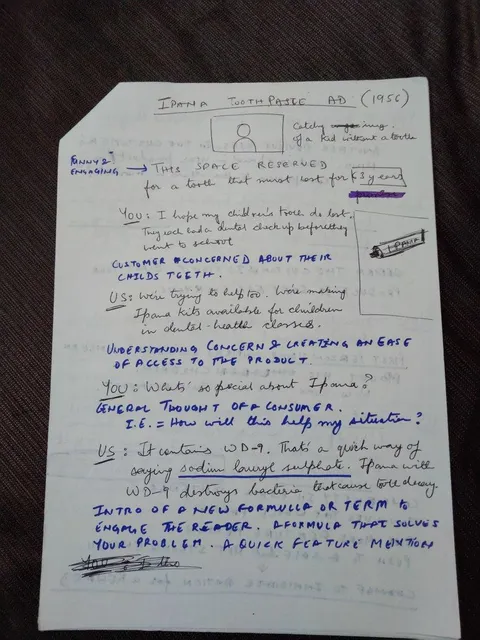 IPANA TOOTH PASTE AD (1956)
Catchy img.
of a kid without a tooth
FUNNY &
ENGAGING → THIS SPACE RESERVED
for a tooth that must last for 63 years
YOU: I hope my children's teeth do last.
They each had a dental check up before they
went to school
IPANA
CUSTOMER CONCERNED ABOUT THEIR
CHILDS TEETH.
US: We're trying to help too. We're making
Ipana kits available for children
in dental-health classes.
UNDERSTANDING CONCERN & CREATING AN EASE
OF ACCESS TO THE PRODUCT.
YOU: Whats' so special about Ipana?
GENERAL THOUGHT OF A CONSUMER.
I.E. = How will this help my situation?
US: It contains WD-9. That's a quick way of
saying sodium lauryl sulphate. Ipana with
WD-9 destroys bacteria that cause tooth decay
INTRO OF A NEW FORMULLA OR TERM TO
ENGAGE THE READER. A FORMULA THAT SOLVES
YOUR PROBLEM. A QUICK FEATURE MENTION